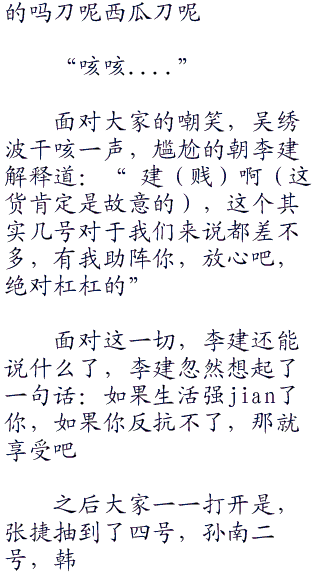 的吗刀呢西瓜刀呢
“咳咳....”
面对大家的嘲笑，吴绣
波干咳一声，尴尬的朝李建
解释道：“ 建（贱）啊（这
货肯定是故意的），这个其
实几号对于我们来说都差不
多，有我助阵你，放心吧，
绝对杠杠的”
面对这一切，李建还能
说什么了，李建忽然想起了
一句话：如果生活强jian了
你，如果你反抗不了，那就
享受吧
之后大家一一打开是，
张捷抽到了四号，孙南二
号，韩